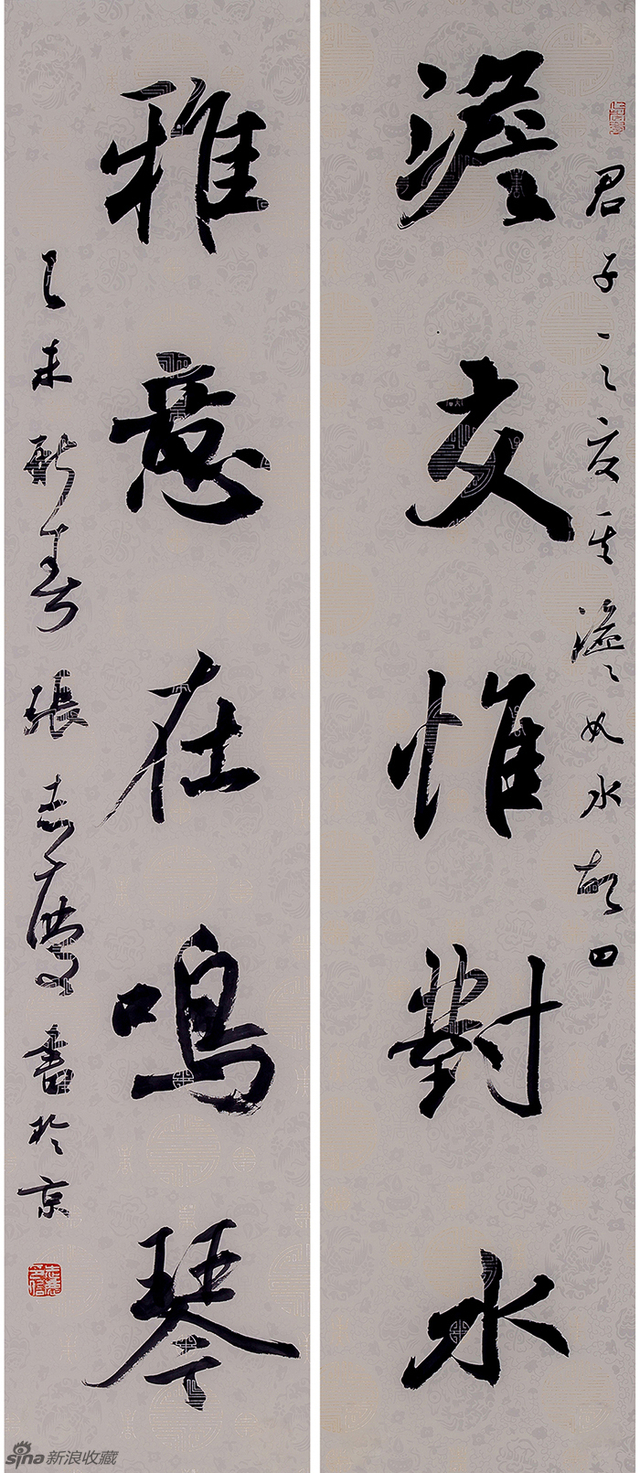 君子之交其澹如水故曰
澹交惟對水
雅意在鳴琴
乙未新春張志慶書於京
sina新浪收藏